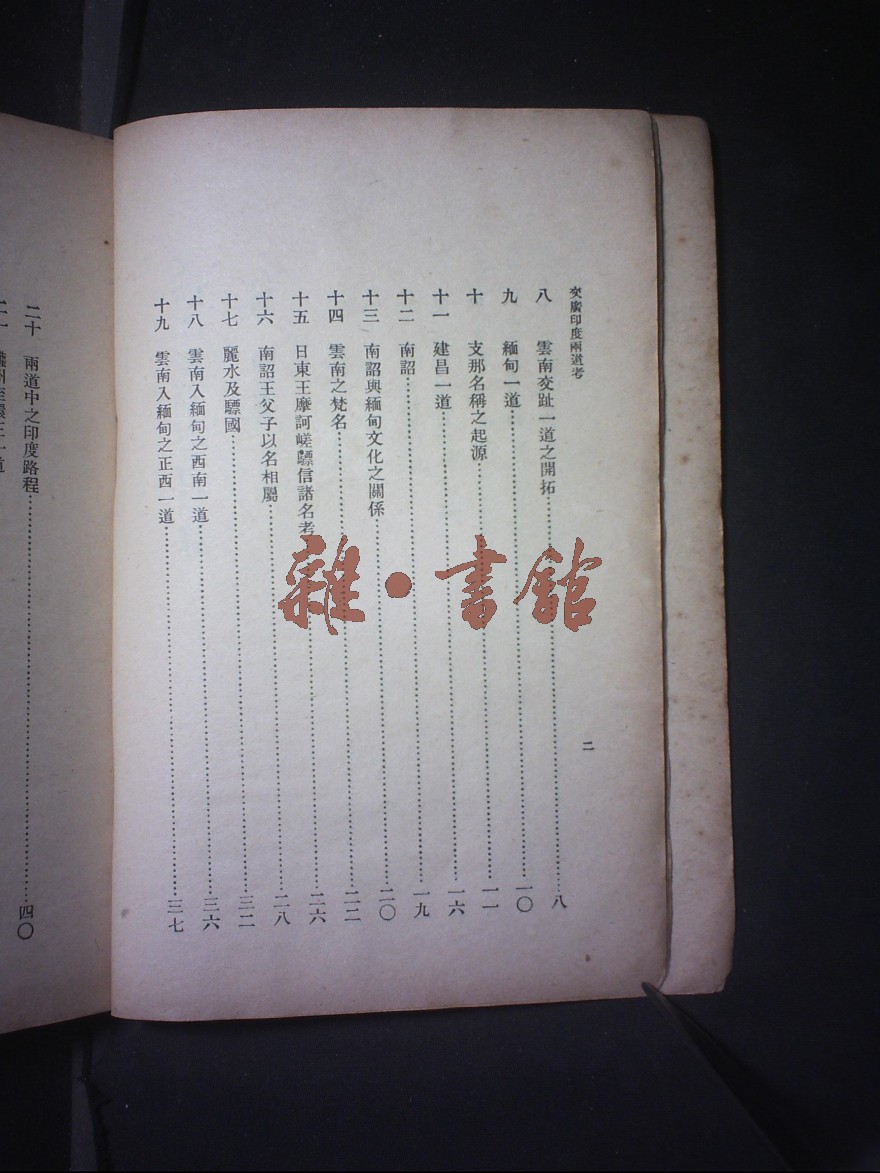 交廣印度兩道考
八 雲南交趾一道之開拓……八
九 緬甸一道……一〇
十 支那名稱之起源……一一
十一 建昌一道……一六
十二 南詔……一九
十三 南詔與緬甸文化之關係……二〇
十四 雲南之梵名……二二
十五 日東王摩訶嵯驃信諸名考……二六
十六 南詔王父子以名相屬……二八
十七 麗水及驃國……三二
十八 雲南入緬甸之西南一道……三六
十九 雲南入緬甸之正西一道……三七
二
二十 兩道中之印度路程……四〇
雜·書館